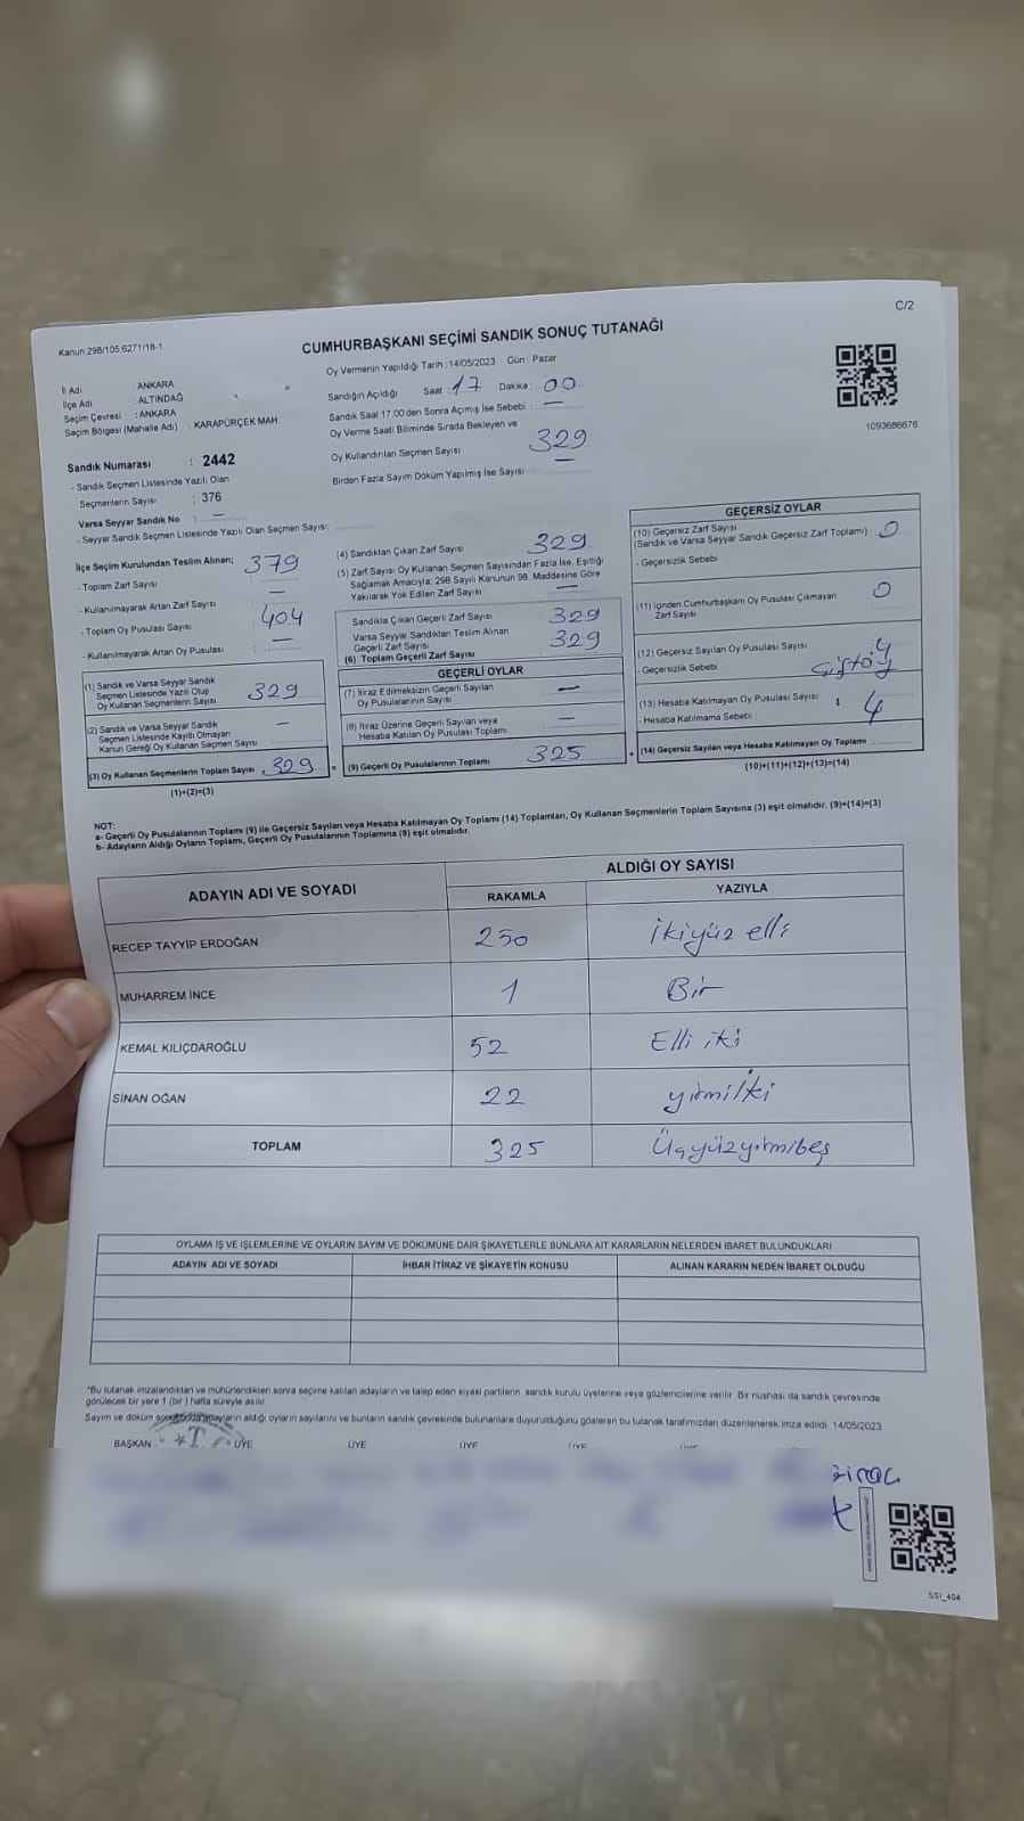 C/2
Kanun 298/105 6271/18-1
CUMHURBAŞKANI SEÇİMİ SANDIK SONUÇ TUTANAĞI
1093686676
İl Adı ANKARA
İlçe Adı ALTINDAĞ
Seçim Çevresi : ANKARA
Seçim Bölgesi (Mahalle Adı) KARAPÜRÇEK MAH.
Sandık Numarası : 2442
- Sandık Seçmen Listesinde Yazılı Olan
Seçmenlerin Sayısı : 376
Varsa Seyyar Sandık No : —
- Seyyar Sandık Seçmen Listesinde Yazılı Olan Seçmen Sayısı:
Oy Vermenin Yapıldığı Tarih :14/05/2023 Gün : Pazar
Sandığın Açıldığı Saat : 17 Dakika : 00
Sandık Saat 17.00'den Sonra Açılmış İse Sebebi : —
Oy Verme Saati Bitiminde Sırada Bekleyen ve
Oy Kullandırılan Seçmen Sayısı 329
Birden Fazla Sayım Döküm Yapılmış İse Sayısı : —
İlçe Seçim Kurulundan Teslim Alınan; 379
- Toplam Zarf Sayısı —
- Kullanılmayarak Artan Zarf Sayısı 404
- Toplam Oy Pusulası Sayısı —
- Kullanılmayarak Artan Oy Pusulası :
(1) Sandık ve Varsa Seyyar Sandık
Seçmen Listesinde Yazılı Olup
Oy Kullanan Seçmenlerin Sayısı 329
(2) Sandık ve Varsa Seyyar Sandık
Seçmen Listesinde Kayıtlı Olmayan
Kanun Gereği Oy Kullanan Seçmen Sayısı —
(3) Oy Kullanan Seçmenlerin Toplam Sayısı 329
(1)+(2)=(3)
(4) Sandıktan Çıkan Zarf Sayısı 329
(5) Zarf Sayısı Oy Kullanan Seçmen Sayısından Fazla İse, Eşitliği
Sağlamak Amacıyla, 298 Sayılı Kanunun 98. Maddesine Göre
Yakılarak Yok Edilen Zarf Sayısı —
Sandıkta Çıkan Geçerli Zarf Sayısı 329
Varsa Seyyar Sandıktan Teslim Alınan
Geçerli Zarf Sayısı 329
(6) Toplam Geçerli Zarf Sayısı
GEÇERLİ OYLAR
(7) İtiraz Edilmeksizin Geçerli Sayılan
Oy Pusulalarının Sayısı —
(8) İtiraz Üzerine Geçerli Sayılan veya
Hesaba Katılan Oy Pusulası Toplamı —
(9) Geçerli Oy Pusulalarının Toplamı 325
GEÇERSİZ OYLAR
(10) Geçersiz Zarf Sayısı
(Sandık ve Varsa Seyyar Sandık Geçersiz Zarf Toplamı) 0
- Geçersizlik Sebebi
(11) İçinden Cumhurbaşkanı Oy Pusulası Çıkmayan 0
Zarf Sayısı
(12) Geçersiz Sayılan Oy Pusulası Sayısı 4
- Geçersizlik Sebebi
(13) Hesaba Katılmayan Oy Pusulası Sayısı : 4
- Hesaba Katılmama Sebebi
(14) Geçersiz Sayılan veya Hesaba Katılmayan Oy Toplamı
(10)+(11)+(12)+(13)=(14)
NOT:
a- Geçerli Oy Pusulalarının Toplamı (9) ile Geçersiz Sayılan veya Hesaba Katılmayan Oy Toplamı (14) Toplamları, Oy Kullanan Seçmenlerin Toplam Sayısına (3) eşit olmalıdır. (9)+(14)=(3)
b- Adayların Aldığı Oyların Toplamı, Geçerli Oy Pusulalarının Toplamına (9) eşit olmalıdır.
ADAYIN ADI VE SOYADI ALDIĞI OY SAYISI
RAKAMLA YAZIYLA
RECEP TAYYİP ERDOĞAN 250 ikiyüz elli
MUHARREM İNCE 1 Bir
KEMAL KILIÇDAROĞLU 52 Elli iki
SİNAN OĞAN 22 yirmi iki
TOPLAM 325 Üçyüzyirmibeş
OYLAMA İŞ VE İŞLEMLERİNE VE OYLARIN SAYIM VE DÖKÜMÜNE DAİR ŞİKAYETLERLE BUNLARA AİT KARARLARIN NELERDEN İBARET BULUNDUKLARI
ADAYIN ADI VE SOYADI İHBAR İTİRAZ VE ŞİKAYETİN KONUSU ALINAN KARARIN NEDEN İBARET OLDUĞU
*Bu tutanak imzalandıktan ve mühürlendikten sonra seçime katılan adayların ve talep eden siyasi partilerin sandık kurulu üyelerine veya gözlemcilerine verilir. Bir nüshası da sandık çevresinde
görülecek bir yere 1 (bir) hafta süreyle asılır.
Sayım ve döküm sonucunda adayların aldığı oyların sayılarını ve bunların sandık çevresinde bulunanlara duyurulduğunu gösteren bu tutanak tarafımızdan düzenlenerek imza edildi. 14/05/2023
BAŞKAN ÜYE ÜYE ÜYE ÜYE
SS1_404